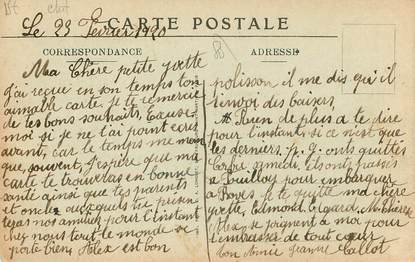 Le 23 Février 1920
CARTE POSTALE
CORRESPONDANCE
ADRESSE
Ma Chère petite yvette
J'ai reçue en son temps ton
aimable carte. Je te remercie
de tes bons souhaits. Excuse
moi si je ne t'ai point ecris
avant, car le temps me man
que, souvent, j'espère que ma
carte te trouveras en bonne
santé ainsi que tes parents
et oncle auxquels tu presen
teras nos amitiés, pour l'instant
chez nous tout le monde se
porte bien, Alex est bon
polisson il me dis qu'il
t'envoi des baisers,
Rien de plus a te dire
pour l'instant si ce n'est que
les derniers p. g. ont quittés
Corbie samedi, ils ont passés
a Fouilloy pour embarquer
a Boves. Je te quitte ma chère
yvette, Edmond, Edgard, M. Thérèse
Alex se joignent a moi pour
t'embrasser de tout cœur
Ton Amie Jeanne Callot